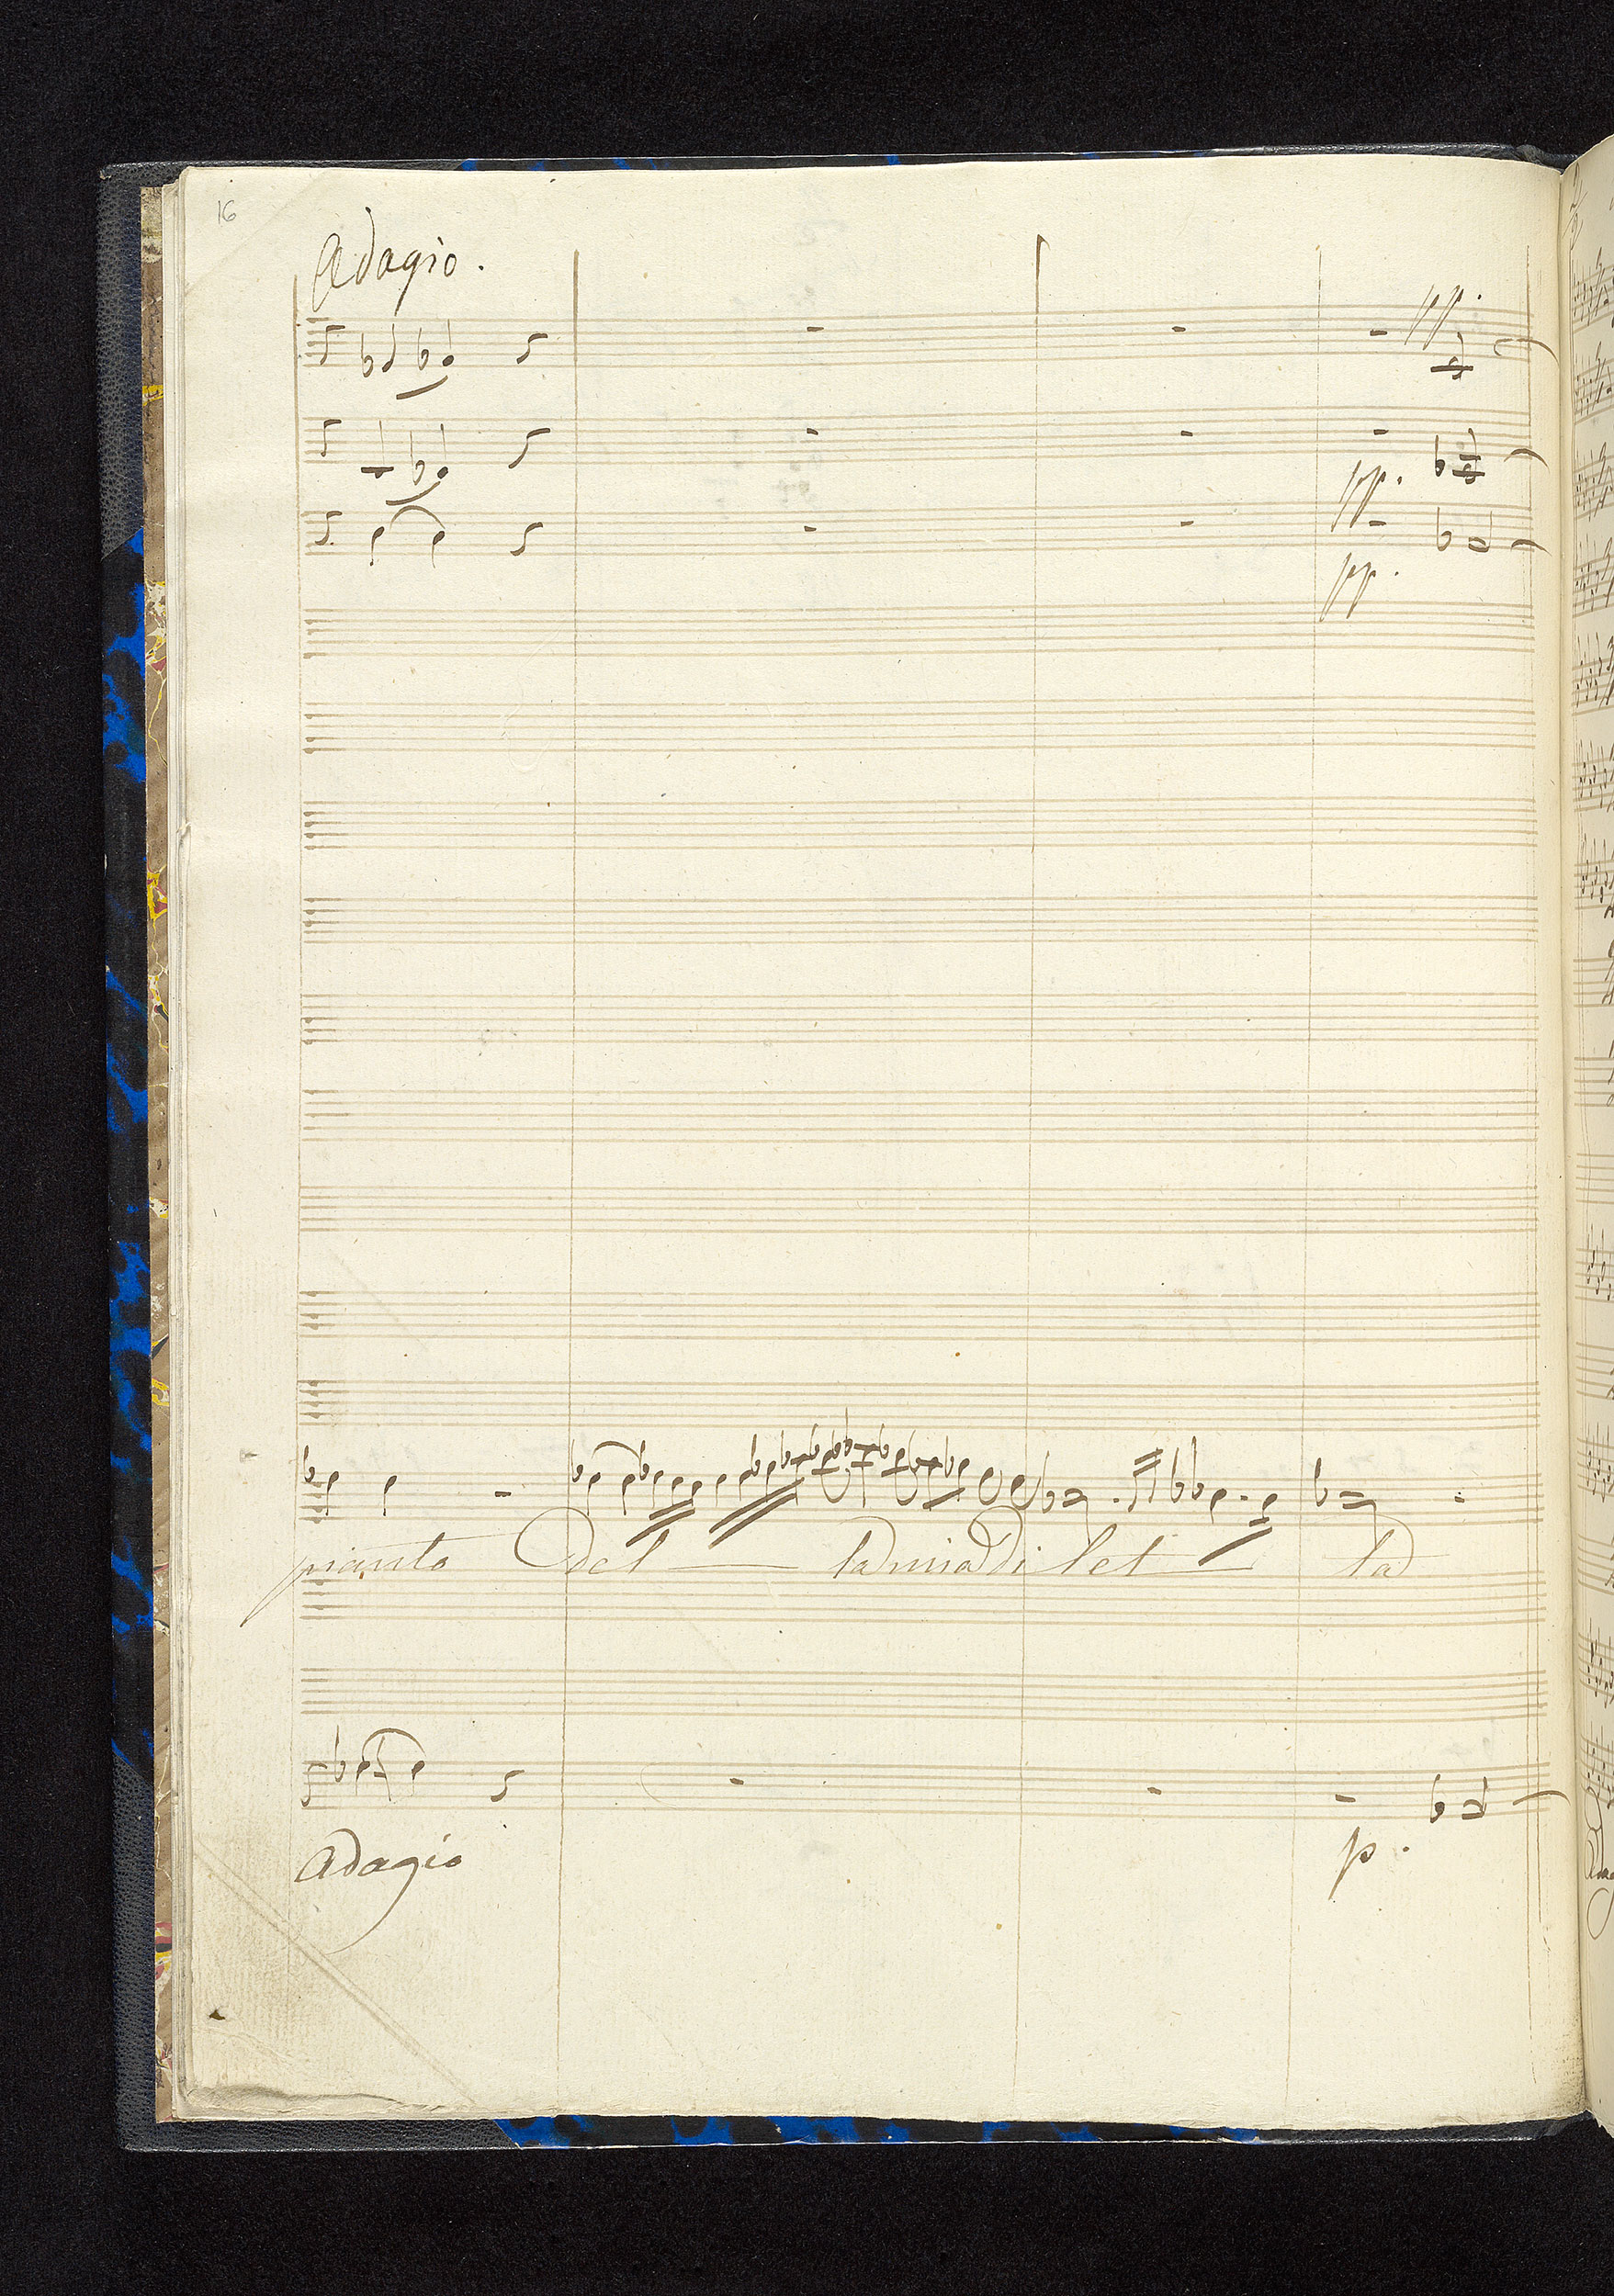 16
Adagio.
pp.
pp.
pp.
pianto Del la mia Di let ta
p.
Adagio